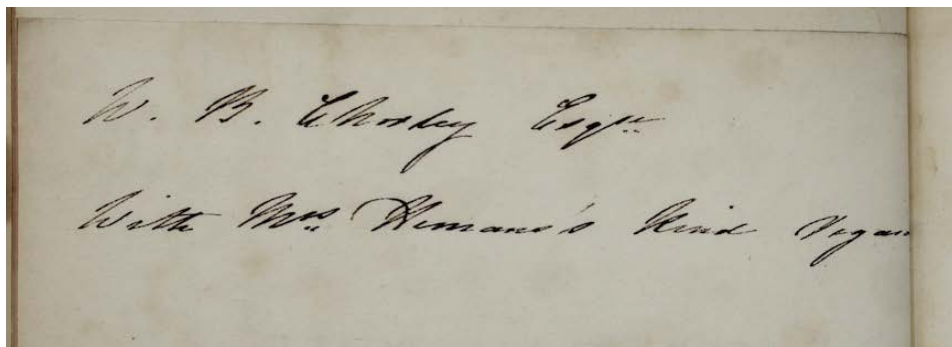 W. B. Chorley Esqre
With Mrs. Hemans's kind regar